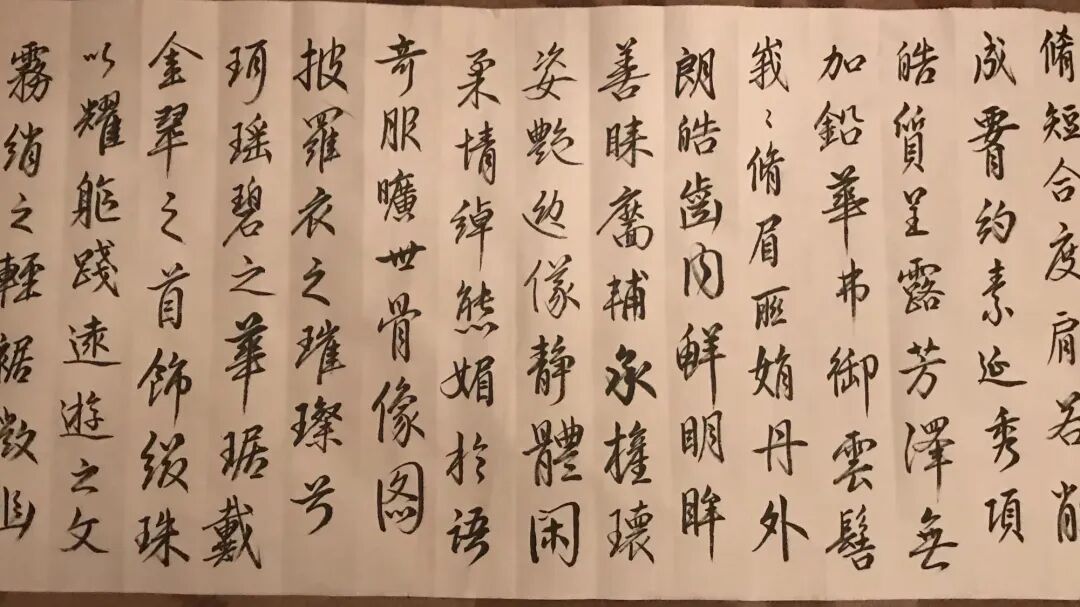 脩短合度肩若肖
成腰约素延秀項
皓質呈露芳澤無
加鉛華弗御雲髻
峩〻脩眉聮娟丹外
朗皓齒内鮮明眸
善睐靨輔承權瓌
姿艷逸儀静體闲
柔情綽態媚於语
奇服曠世骨像图
披羅衣之璀璨兮
珥瑶碧之華琚戴
金翠之首飾缀珠
以耀軀踐遠遊之文
霧绡之輕裾微